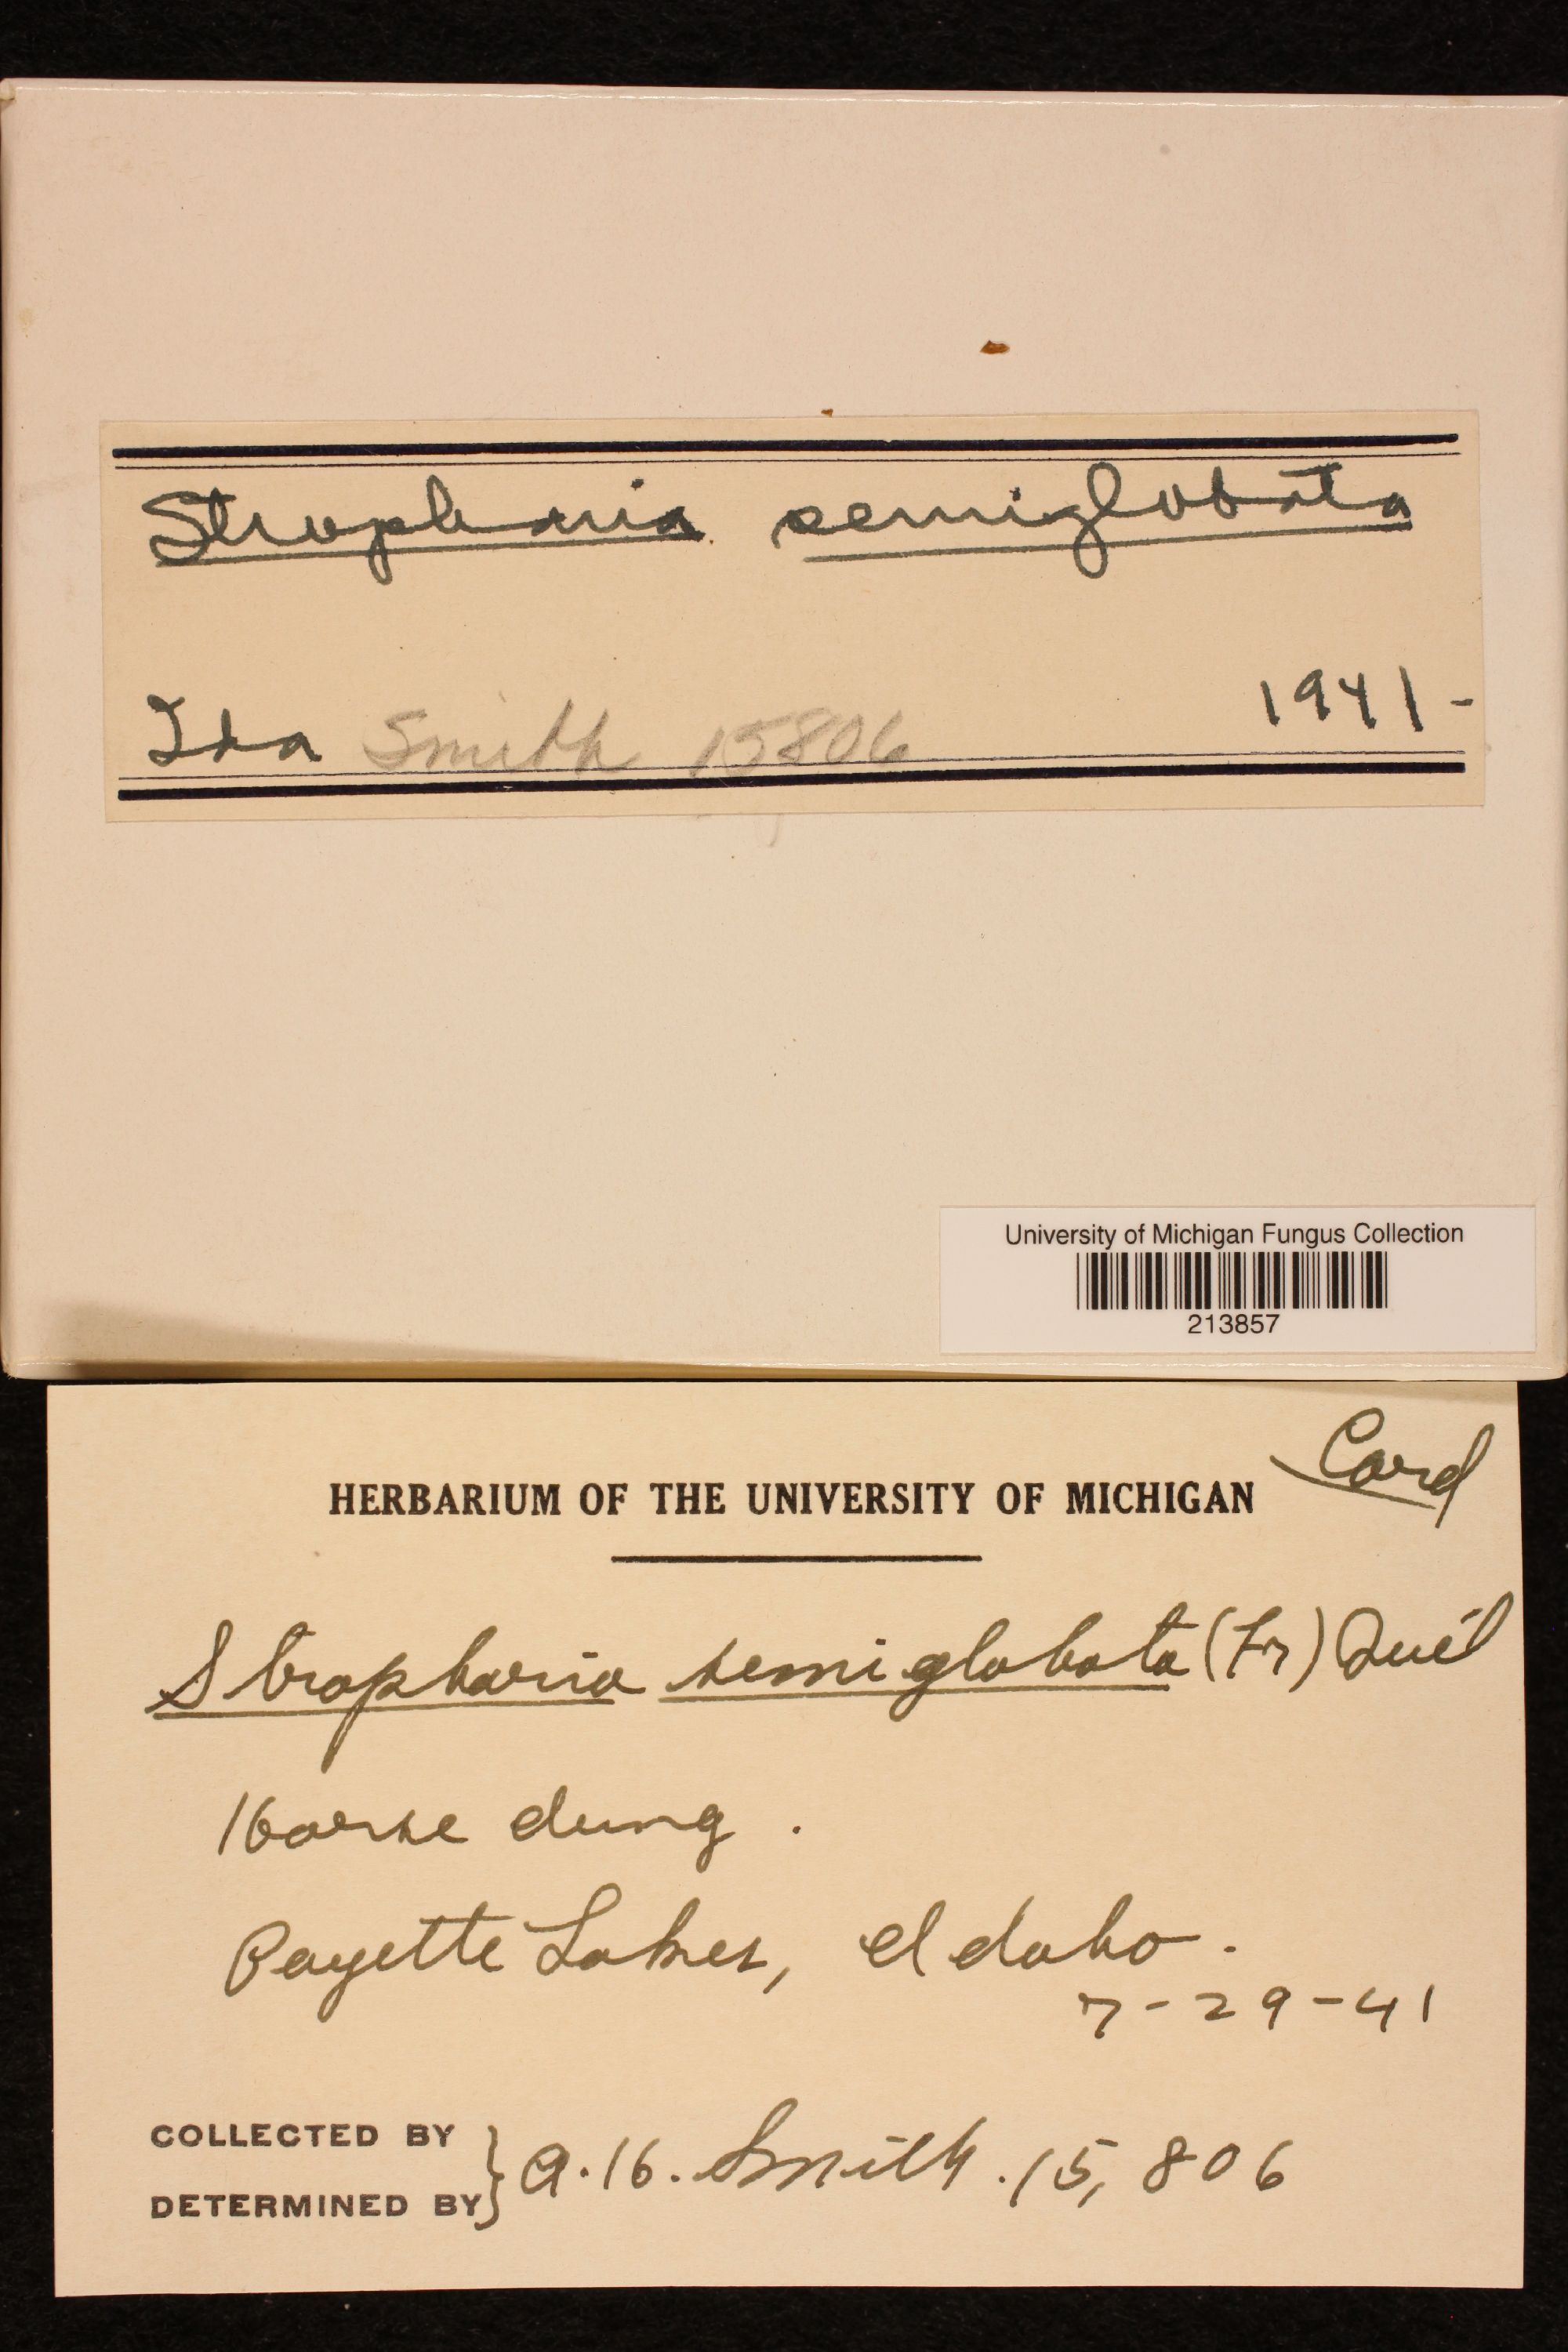 Stropharia semiglobata
Ida Smith 15806 1941-
University of Michigan Fungus Collection
213857
Card
HERBARIUM OF THE UNIVERSITY OF MICHIGAN
Stropharia semiglobata (Fr) Quél
Horse dung.
Payette Lakes, Idaho.
7-29-41
COLLECTED BY
DETERMINED BY } A.H. Smith. 15,806